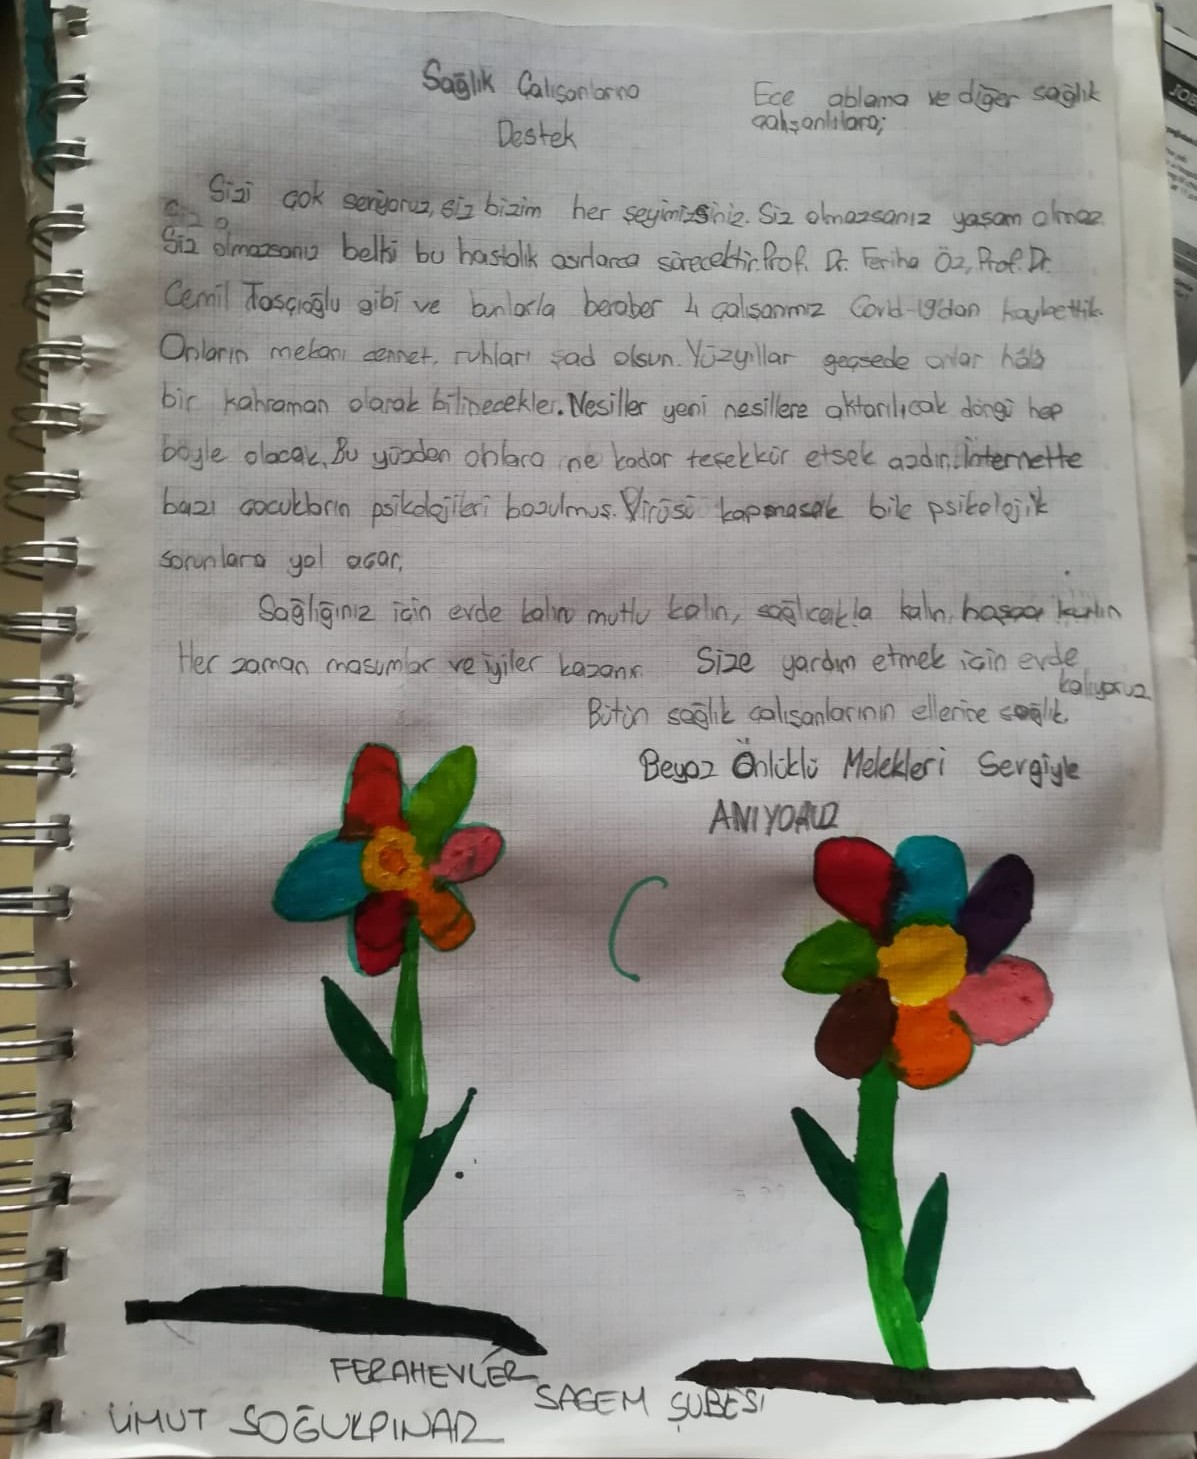 Sağlık Çalışanlarına
Destek
Ece ablama ve diğer sağlık
çalışanlılara;
Sizi çok seviyoruz, siz bizim her şeyimizsiniz. Siz olmazsanız yaşam olmaz.
Siz olmazsanız belki bu hastalık asırlarca sürecektir. Prof. Dr. Feriha Öz, Prof. Dr.
Cemil Tasçıoğlu gibi ve bunlarla beraber 4 çalışanımız Covid-19'dan kaybettik.
Onların mekanı cennet, ruhları şad olsun. Yüzyıllar geçsede onlar hâlâ
bir kahraman olarak bilinecekler. Nesiller yeni nesillere aktarılıcak döngü hep
böyle olacak. Bu yüzden onlara ne kadar teşekkür etsek azdır. İnternette
bazı çocukların psikolojileri bozulmuş. Virüsü kapmasak bile psikolojik
sorunlara yol açar.
Sağlığınız için evde kalın mutlu kalın, sağlıcakla kalın, kalın
Her zaman masumlar ve iyiler kazanır. Size yardım etmek için evde
kalıyoruz
Bütün sağlık çalışanlarının ellerine sağlık.
Beyaz Önlüklü Melekleri Sevgiyle
ANIYORUZ
FERAHEVLER
SAGEM ŞUBESİ
UMUT SOĞUKPINAR